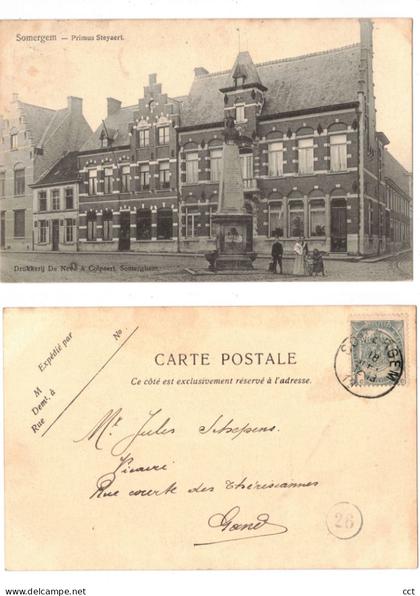 Somergem — Primus Steyaert.
Drukkerij De Neve & Colpaert, Somerghem.
Expédié par
No
M
Demt. à
Rue
CARTE POSTALE
Ce côté est exclusivement réservé à l'adresse.
SOMERGEM
Mr Jules Schepens.
Vicaire
Rue courte des Thérésiennes
Gand
26
cct